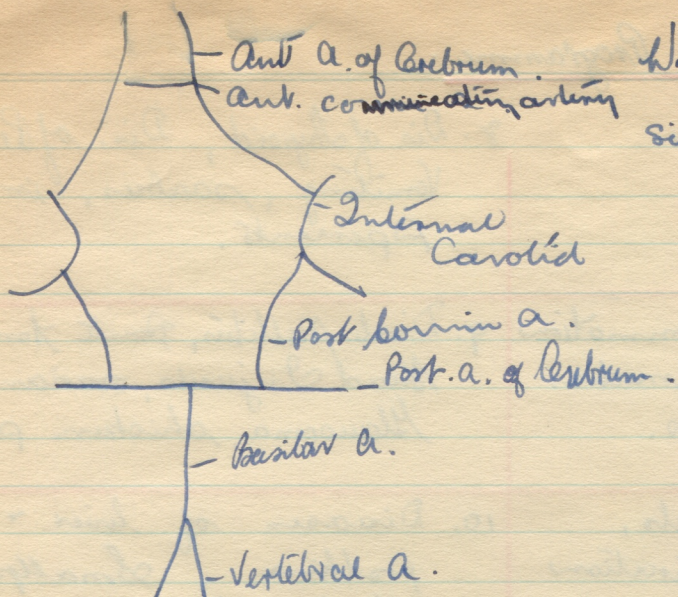 Ant a. of Cerebrum.
ant. communicating artery
Si
Internal
Carotid
Post commin a.
Post. a. of Cerebrum.
Basilar a.
Vertebral a.